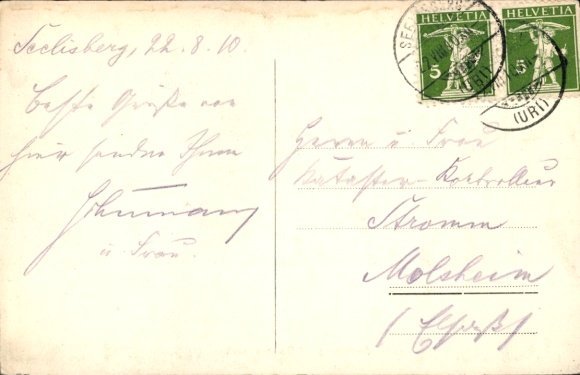 Seelisberg, 22.8.10.
Beste Grüße von
hier senden Ihnen
u. Frau.
HELVETIA
5
HELVETIA
5
SEELISBERG
(URI)
(URI)
Herrn u. Frau
Kataster-Kontrolleur
Stromm
Molsheim
(Elsaß)